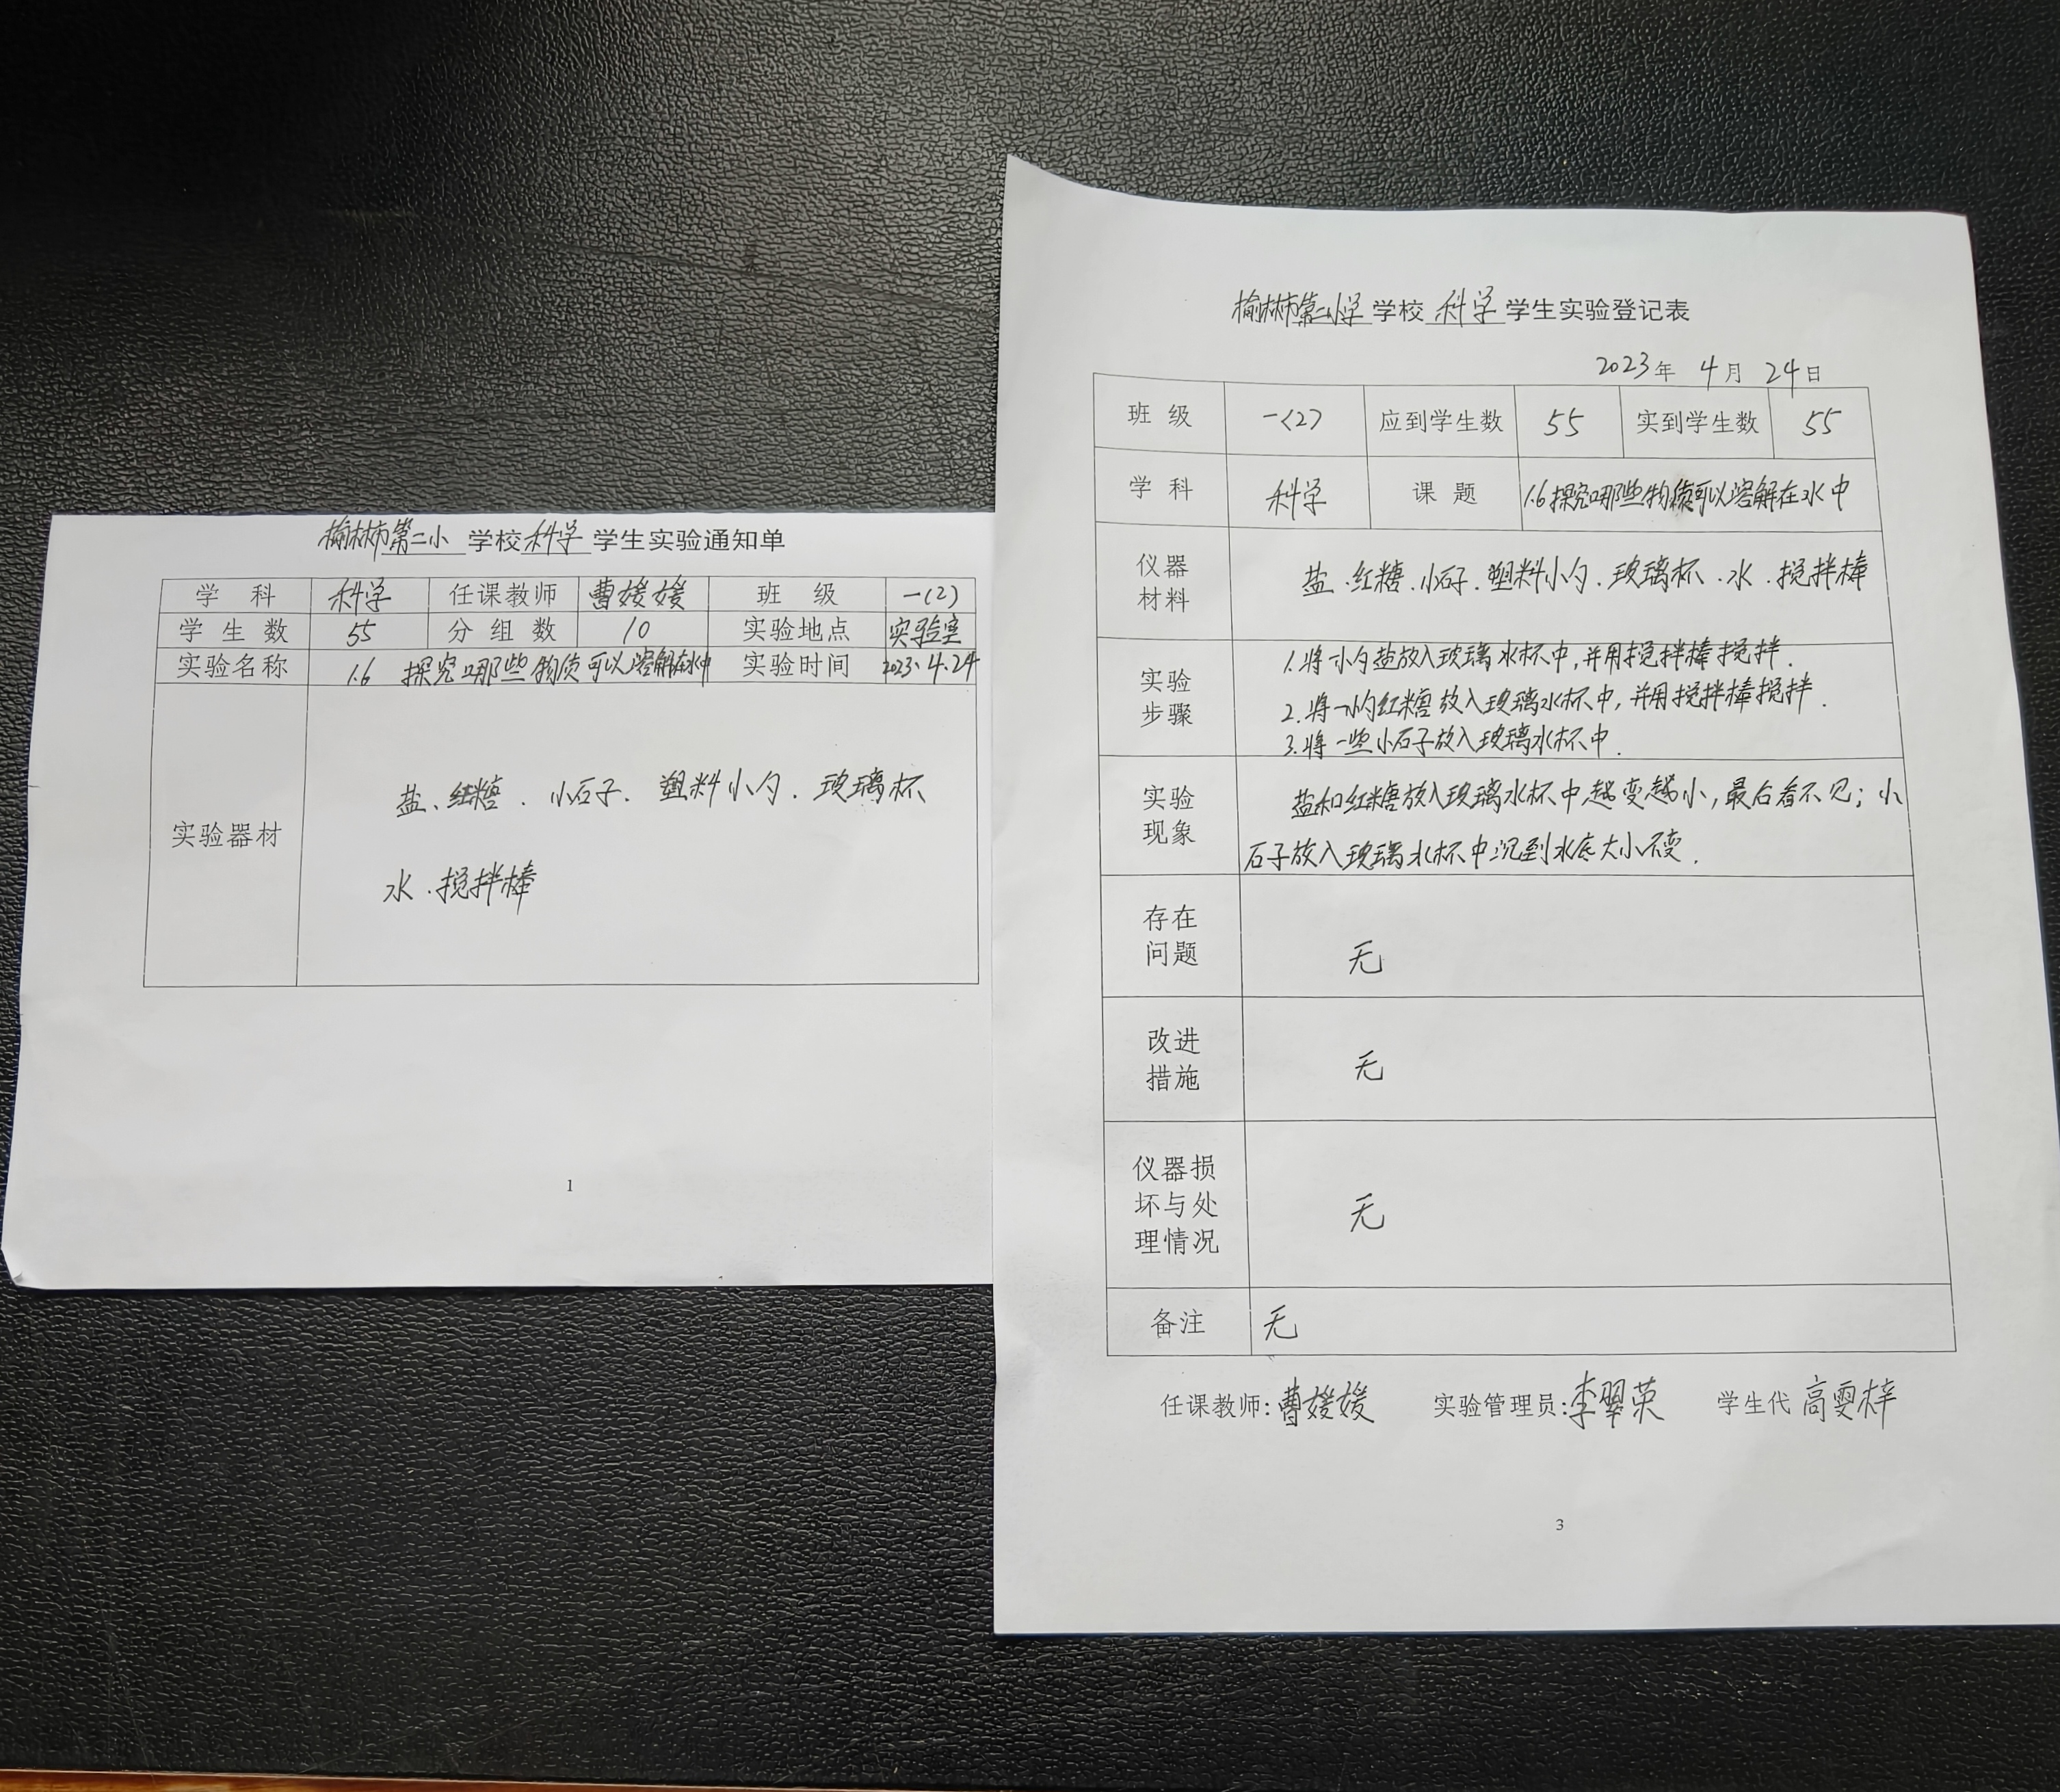 榆林市第二小 学校 科学 学生实验通知单
学 科 科学 任课教师 曹媛媛 班 级 一(2)
学 生 数 55 分 组 数 10 实验地点 实验室
实验名称 1.6 探究哪些物质可以溶解在水中 实验时间 2023.4.24
实验器材
盐、红糖、小石子、塑料小勺、玻璃杯
水、搅拌棒
1
榆林市第二小学 学校 科学 学生实验登记表
2023年 4月 24日
班 级 一(2) 应到学生数 55 实到学生数 55
学 科 科学 课 题 1.6探究哪些物质可以溶解在水中
仪器
材料
盐、红糖、小石子、塑料小勺、玻璃杯、水、搅拌棒
实验
步骤
1.将一小勺盐放入玻璃水杯中,并用搅拌棒搅拌.
2.将一小勺红糖放入玻璃水杯中,并用搅拌棒搅拌.
3.将一些小石子放入玻璃水杯中.
实验
现象
盐和红糖放入玻璃水杯中越变越小,最后看不见;小
石子放入玻璃水杯中沉到水底大小不变.
存在
问题
无
改进
措施
无
仪器损
坏与处
理情况
无
备注 无
任课教师:曹媛媛 实验管理员:李翠英 学生代 高雯梓
3